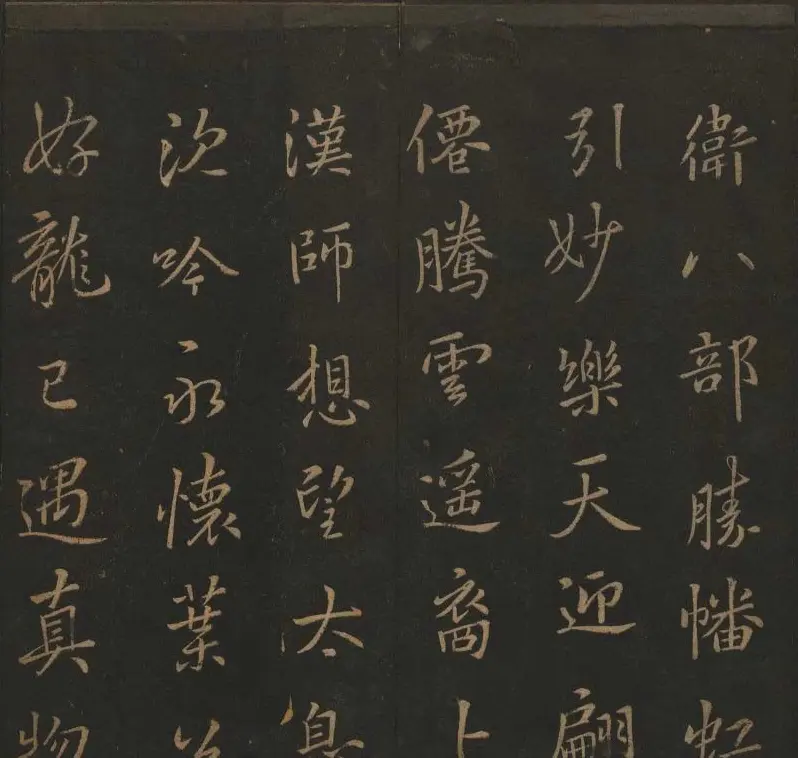 衛八部勝幡虹
引妙樂天迎翩
僊騰雲遥裔上
漢師想望太息
次吟永懷葉公
好龍已遇真物